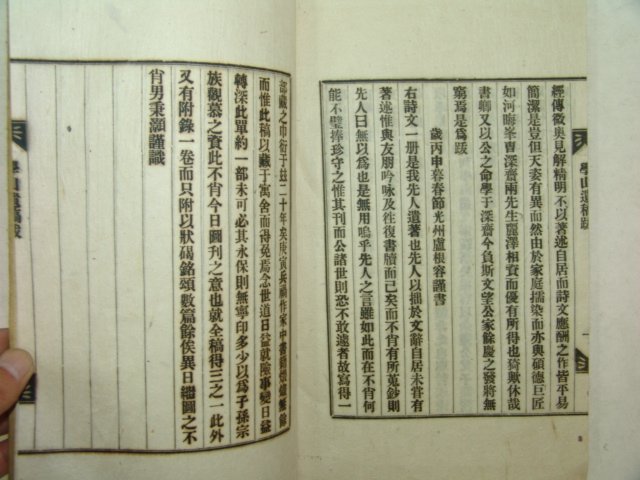 學山遺稿跋
經傳微奧見解精明不以著述自居而詩文應酬之作皆平易
簡潔是豈但天姿有異而然由於家庭擩染而亦與碩德巨匠
如河晦峯曺深齋兩先生麗澤相資而優有所得也猗歟休哉
書卿又以公之命學于深齋今負斯文望公家餘慶之發將無
窮焉是爲跋
歲丙申暮春節光州盧根容謹書
右詩文一册是我先人遺著也先人以拙於文辭自居未嘗有
著述惟與友朋吟咏及徃復書牘而已矣而不肖有所蒐鈔則
先人曰無以爲也是無用嗚乎先人之言雖如此而在不肖何
能不璧捧珍守之惟其刊而公諸世則恐不敢遠者故寫得一
部藏之巾衍于玆二十年矣庚寅兵禍作家中書籍
而惟此稿以藏于寓舍而得免焉念世道日益就險事變日益
轉深此單約一部未可必其永保則無寧印多少以爲子孫宗
族觀慕之資此不肖今日圖刊之意也就全稿得三之一此外
又有附錄一卷而只附以狀碣銘頌數篇餘俟異日繼圖之不
肖男秉灝謹識
學山遺稿跋